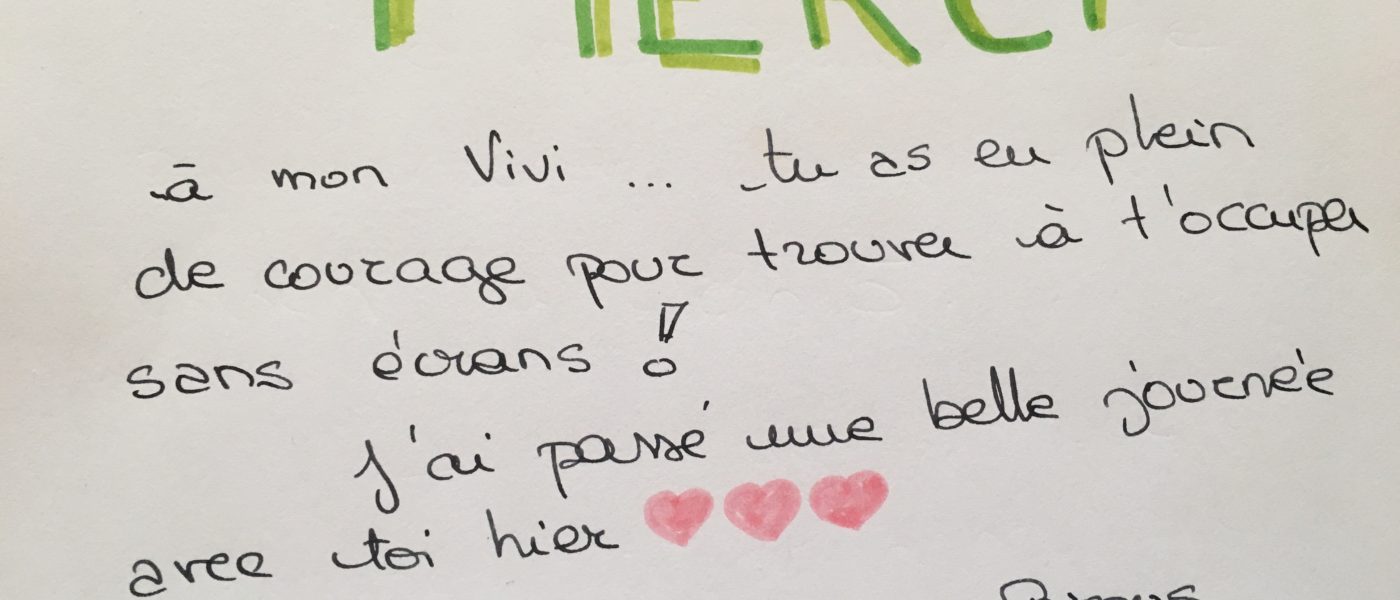 MERCI
à mon Vivi ... tu as eu plein
de courage pour trouver à t'occuper
sans écrans !
J'ai passé une belle journée
avec toi hier